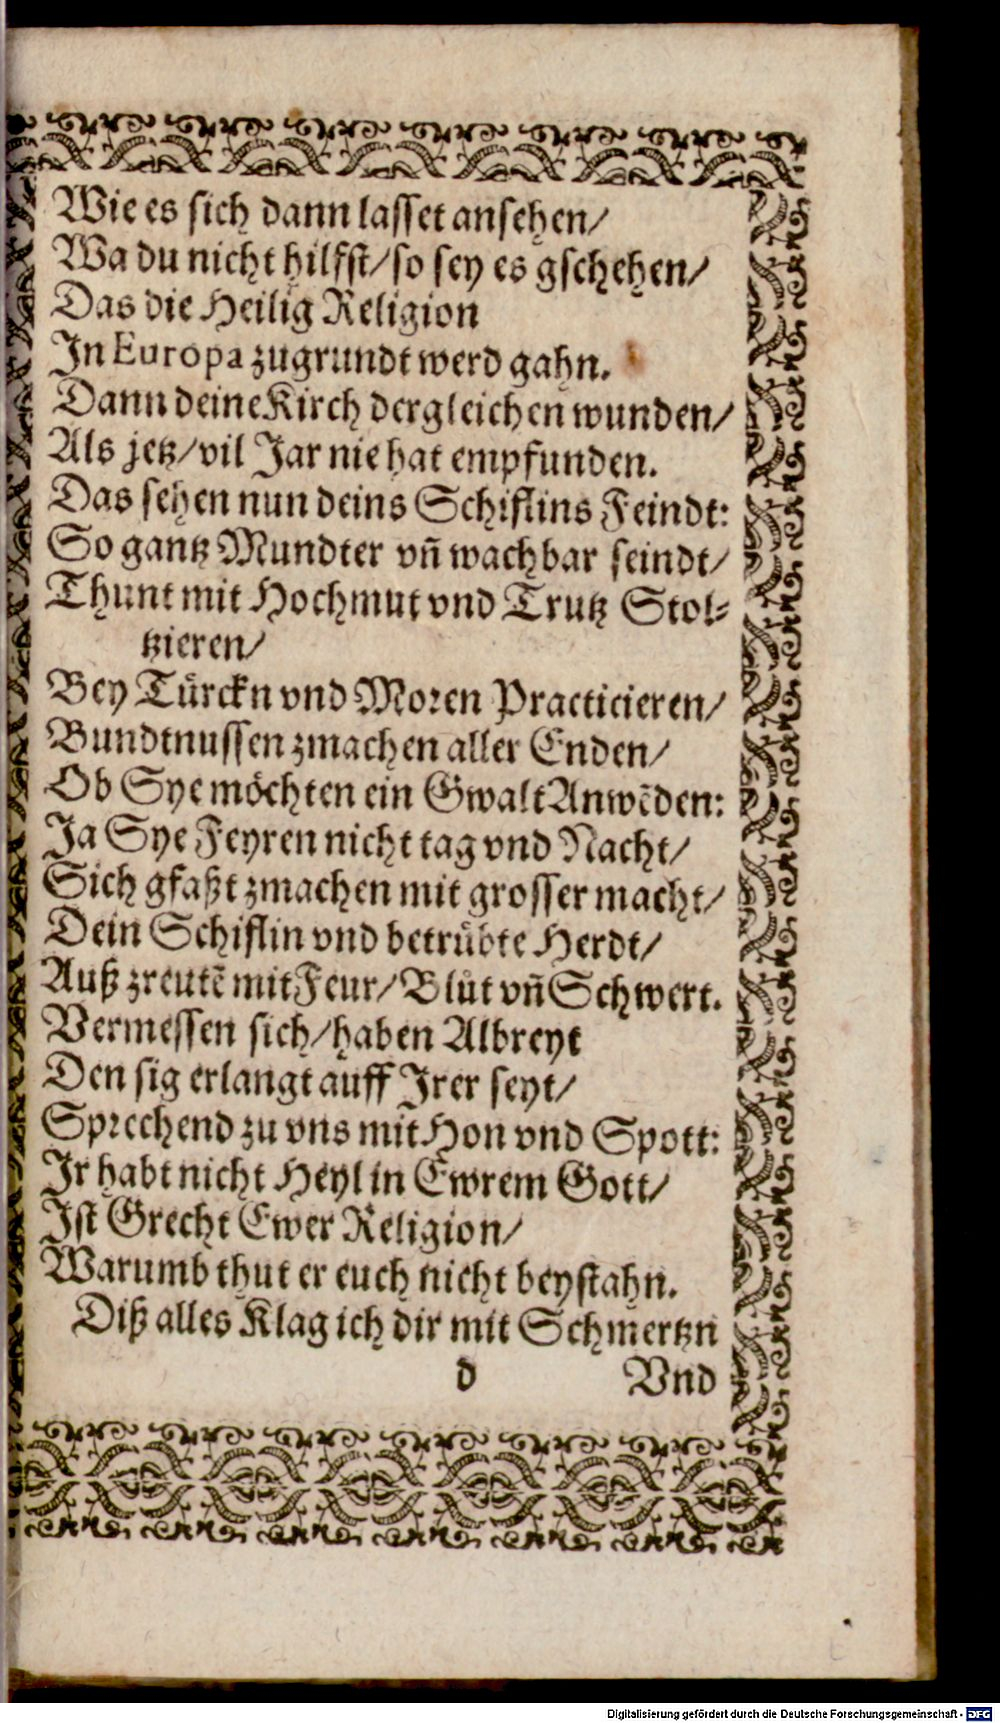 Wie es sich dann lasset ansehen/
Wa du nicht hilfst/so sey es gschehen/
Das die Heilig Religion
In Europa zugrundt werd gahn.
Dann deine Kirch dergleichen wunden/
Als jetz/vil Jar nie hat empfunden.
Das sehen nun deins Schiflins Feindt:
So gantz Mundter vñ wachbar seindt/
Thunt mit Hochmut vnd Trutz Stol-
tzieren/
Bey Türckn vnd Moren Practicieren/
Bundtnussen zmachen aller Enden/
Ob Sye möchten ein Gwalt Anwẽden:
Ja Sye Feyren nicht tag vnd Nacht/
Sich gfaßt zmachen mit grosser macht/
Dein Schiflin vnd betrübte Herdt/
Auß zreutẽ mit Feur/Blůt vñ Schwert.
Vermessen sich/haben Albreyt
Den sig erlangt auff Irer seyt/
Sprechend zu vns mit Hon vnd Spott:
Ir habt nicht Heyl in Ewrem Gott/
Ist Grecht Ewer Religion/
Warumb thut er euch nicht beystahn.
Diß alles Klag ich dir mit Schmertzn
d Vnd
Digitalisierung gefördert durch die Deutsche Forschungsgemeinschaft - DFG